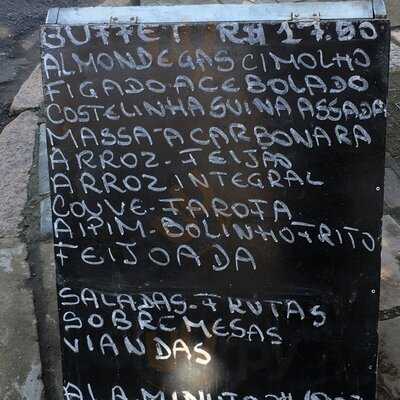 BUFFET R$ 17.50
ALMONDEGAS C/MOLHO
FIGADO ACEBOLADO
COSTELINHA SUINA ASSADA
MASSA-A CARBONARA
ARROZ-FEIJÃO
ARROZ INTEGRAL
COUVE-FAROFA
AIPIM-BOLINHO FRITO
FEIJOADA
SALADAS-FRUTAS
SOBREMESAS
VIANDAS
ALA MINUTA